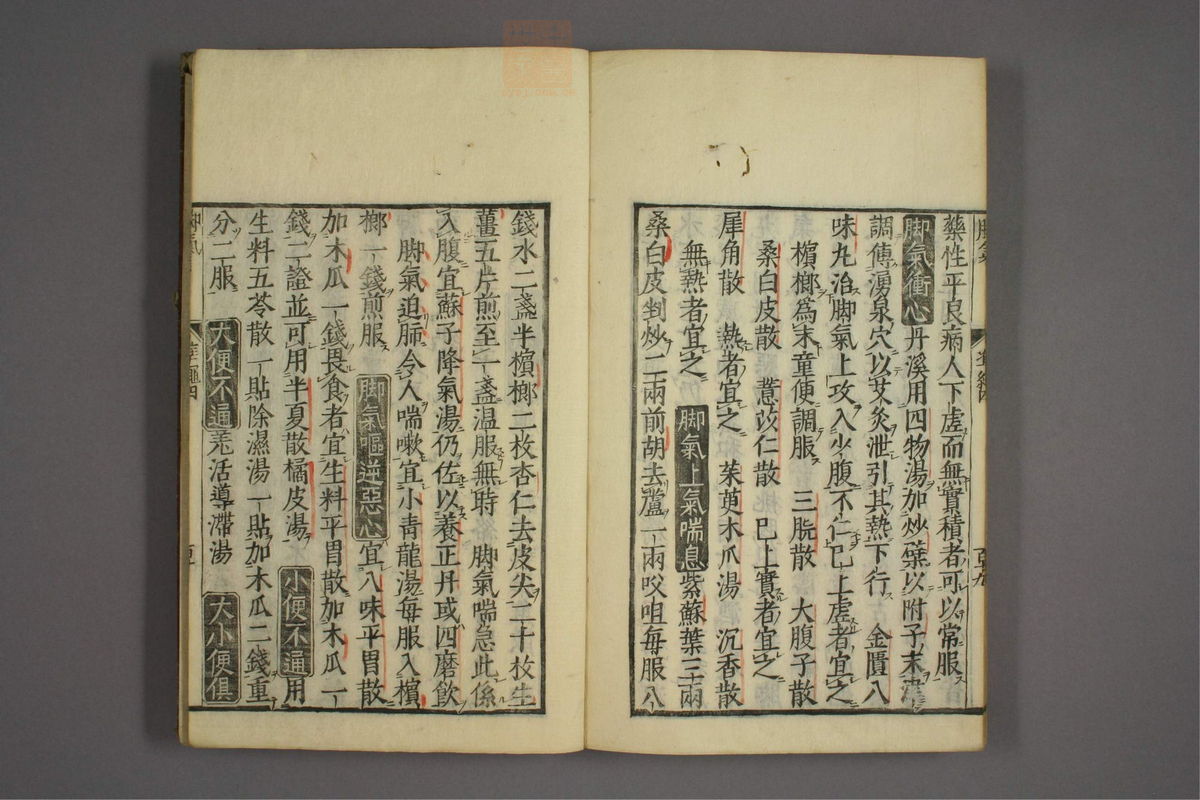 藥性平良病人下虛而無實積者可以常服
脚氣衝心 丹溪用四物湯加炒蘗以附子末
調傅湧泉穴以艾灸泄引其熱下行 金匱八
味丸治脚氣上攻入少腹不仁巳上虛者宜之
檳榔爲末童便調服 三脘散 大腹子散
桑白皮散 薏苡仁散 巳上實者宜之
犀角散 熱者宜之 茱萸木瓜湯 沉香散
無熱者宜之 脚氣上氣喘息 紫蘇葉三兩
桑白皮剉炒二兩前胡去蘆一兩㕮咀每服八
錢水二盞半檳榔二枚杏仁去皮尖二十枚生
薑五片煎至一盞温服無時 脚氣喘急此係
入腹宜蘇子降氣湯仍佐以養正丹或四磨飲
脚氣迫肺令人喘嗽宜小青龍湯每服入檳
榔一錢煎服 脚氣嘔逆惡心 宜八味平胃散
加木瓜一錢畏食者宜生料平胃散加木瓜一
錢二證並可用半夏散橘皮湯 小便不通 用
生料五苓散一貼除濕湯一貼加木瓜二錢重
分二服 大便不通 羌活導滯湯 大小便俱